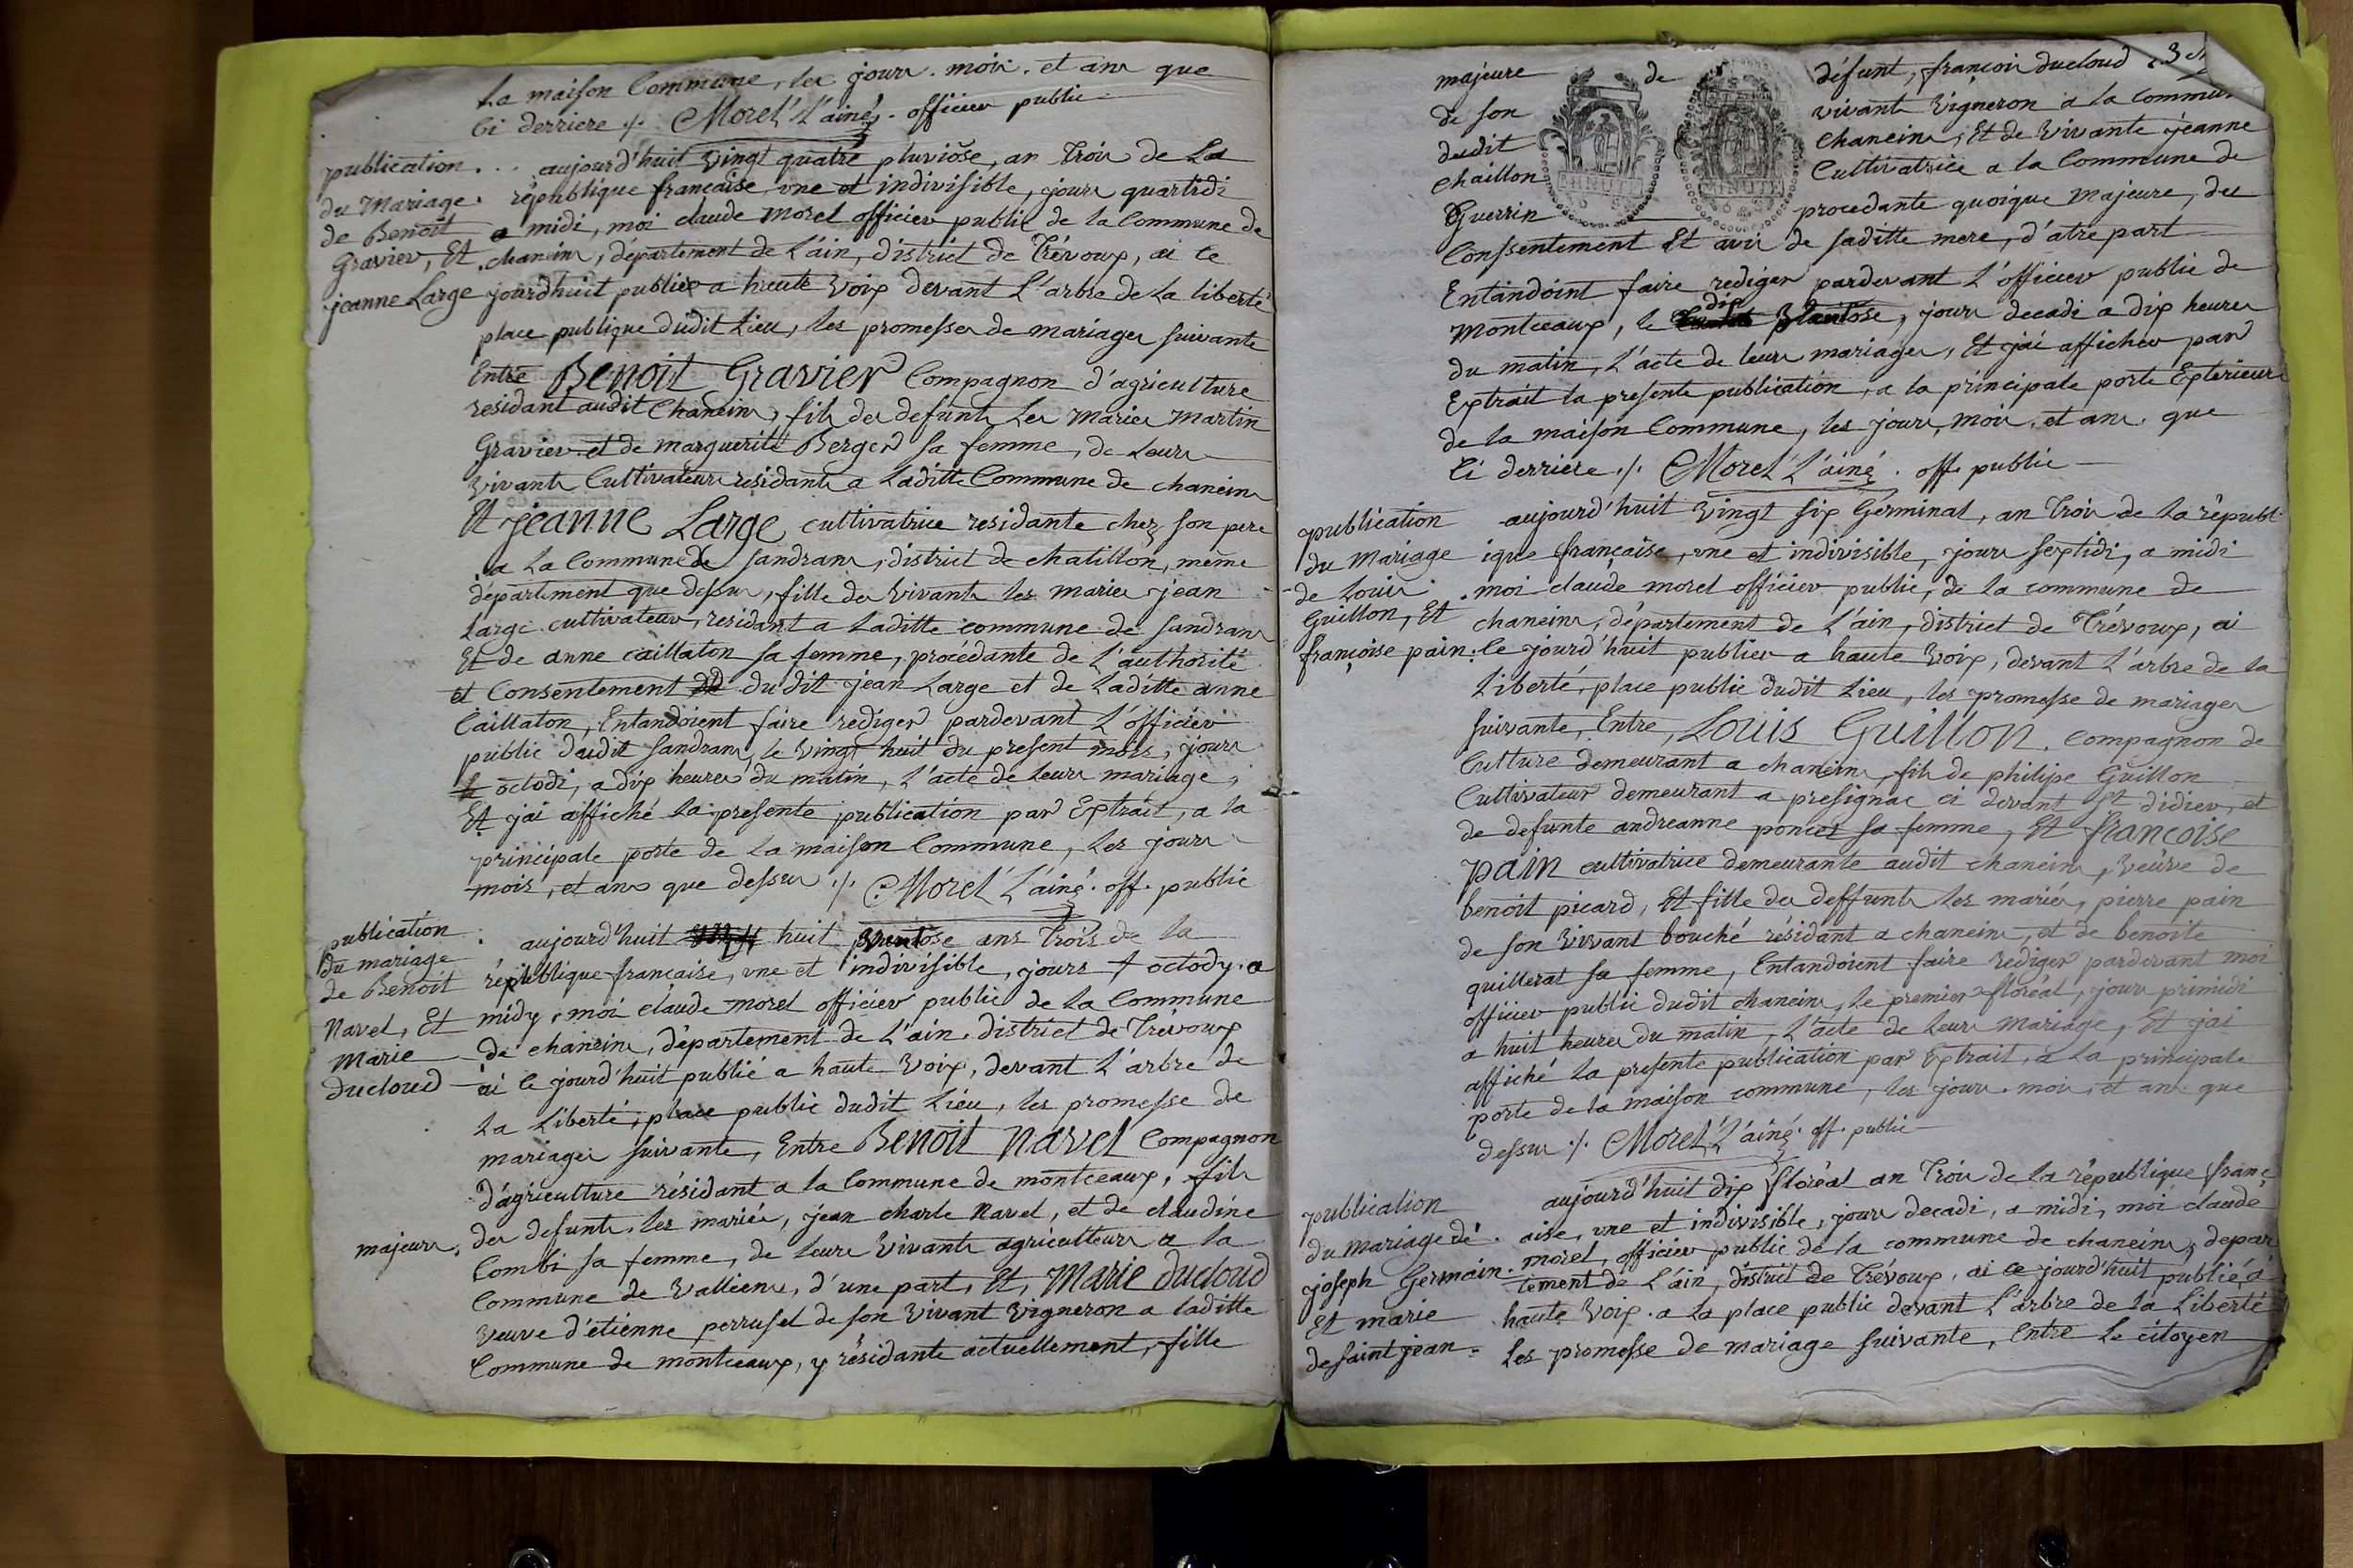 La maison Commune, les jours. mois. et ans que
Ci derriere ./. Morel L'ainé. officier public
publication
du Mariage
de Benoit
Gravier, Et
jeanne Large
aujourd'huit vingt quatre pluviôse, an trois de La
république française une et indivisible, jours quartidi
a midi, moi claude morel officier public de la Commune de
chaneins, département de L'ain, district de Trévoux, ai ce
jourdhuit publier a haute Voix devant L'arbre de la liberté
place publique dudit Lieu, les promesses de mariages suivante
Entre Benoit Gravier Compagnon d'agriculture
residant audit Chaneins, fils des defunts Les Maries Martin
Gravier et de marguerite Berger sa femme, de Leurs
Vivants Cultivateurs résidants a Laditte Commune de chaneins
Et jeanne Large cultivatrice residante chez son pere
a La Commune de sandrans, district de chatillon, même
département que dessus, fille des Vivants les maries jean
Large cultivateur, residant a Laditte commune de sandrans
Et de anne caillaton sa femme, procédante de L'authorité
et Consentement dudit jean Large et de Laditte anne
Caillaton, Entandoient faire rediger pardevant L'officier
public dudit sandrans, le Vingt huit du present mois, jours
octodi, a dix heures du matin, L'acte de Leurs mariage,
Et jai affiché La presente publication par Extrait, a la
principale porte de La maison Commune, Les jours
mois, et ans que dessus ./. Morel L'ainé. off. public
publication
du mariage
de Benoit
Navel, Et
Marie
ducloud
aujourd'huit huit Ventôse ans Trois de la
république francaise, une et indivisible, jours octody. a
midy, moi claude morel officier public de La Commune
de chaneins, département de L'ain, district de Trévoux
ai le jourd'huit publié a haute Voix, devant L'arbre de
La Liberté, place public dudit Lieu, les promesse de
mariages suivante, Entre Benoit Navel Compagnon
d'agriculture résidant a la Commune de montceaux, fils
majeurs, des defunts, les mariés, jean charle Navel, et de claudine
Combi sa femme, de leurs Vivants agriculteurs a la
Commune de Valleins, d'une part, Et, Marie ducloud
Veuve d'etienne perrusel de son Vivant Vigneron a laditte
Commune de montceaux, y résidante actuellement, fille
majeure de défunt, françois ducloud
de son vivant Vigneron a la
dudit chaneins, Et de Vivante jeanne
chaillon Cultivatrice a la Commune de
Guerrin procedante quoique Majeure, du
Conssentement Et avis de saditte mere, d'atre part
Entandoint faire rediger pardevant L'officier public de
montceaux, le dix Ventôse, jours decadi a dix heures
du matin, L'acte de leurs mariages, Et jai afficher par
Extrait la presente publication, a la principale porte Exterieure
de la maison Commune, les jours, mois, et ans. que
Ci derriere ./. Morel L'ainé. off. public
publication
du Mariage
de Louis
Guillon, Et
françoise pain:
aujourd'huit Vingt six Germinal, an Trois de la républ
ique française, une et indivisible, jours septidi, a midi
moi claude morel officier public, de la commune de
chaneins, département de L'ain, district de Trévoux, ai
le jourd'huit publier a haute Voix, devant L'arbre de la
Liberté, place public dudit Lieu, les promesse de mariages
suivante, Entre, Louis Guillon, Compagnon de
Culture demeurant a chaneins, fils de philipe Guillon
Cultivateur demeurant a presignac ci devant st didier, et
de defunte andreanne poncet sa femme, Et francoise
pain cultivatrice demeurante audit chaneins, Veuve de
benoit picard, Et fille des deffunts les mariés, pierre pain
de son Vivant bouché résidant a chaneins, et de benoite
quillerat sa femme, Entandoient faire rediger pardevant moi
officier public dudit chaneins, le premier floréal, jours primidi
a huit heures du matin, L'acte de Leurs Mariage, Et jai
affiché La presente publication par Extrait, a La principale
porte de la maison commune, les jours. mois, et ans que
dessus ./. Morel L'ainé. off. public
publication
du Mariage de
joseph Germain
Et marie
desaint jean
aujourd'huit dix floréal an Trois de la république franç
aise, une et indivisible, jours decadi, a midi, moi claude
morel, officier public de la commune de chaneins, depar
tement de L'ain, district de Trévoux, ai ce jourd'huit publié a
haute Voix a La place public devant L'arbre de la Liberté
Les promesse de mariage suivante, Entre Le citoyen